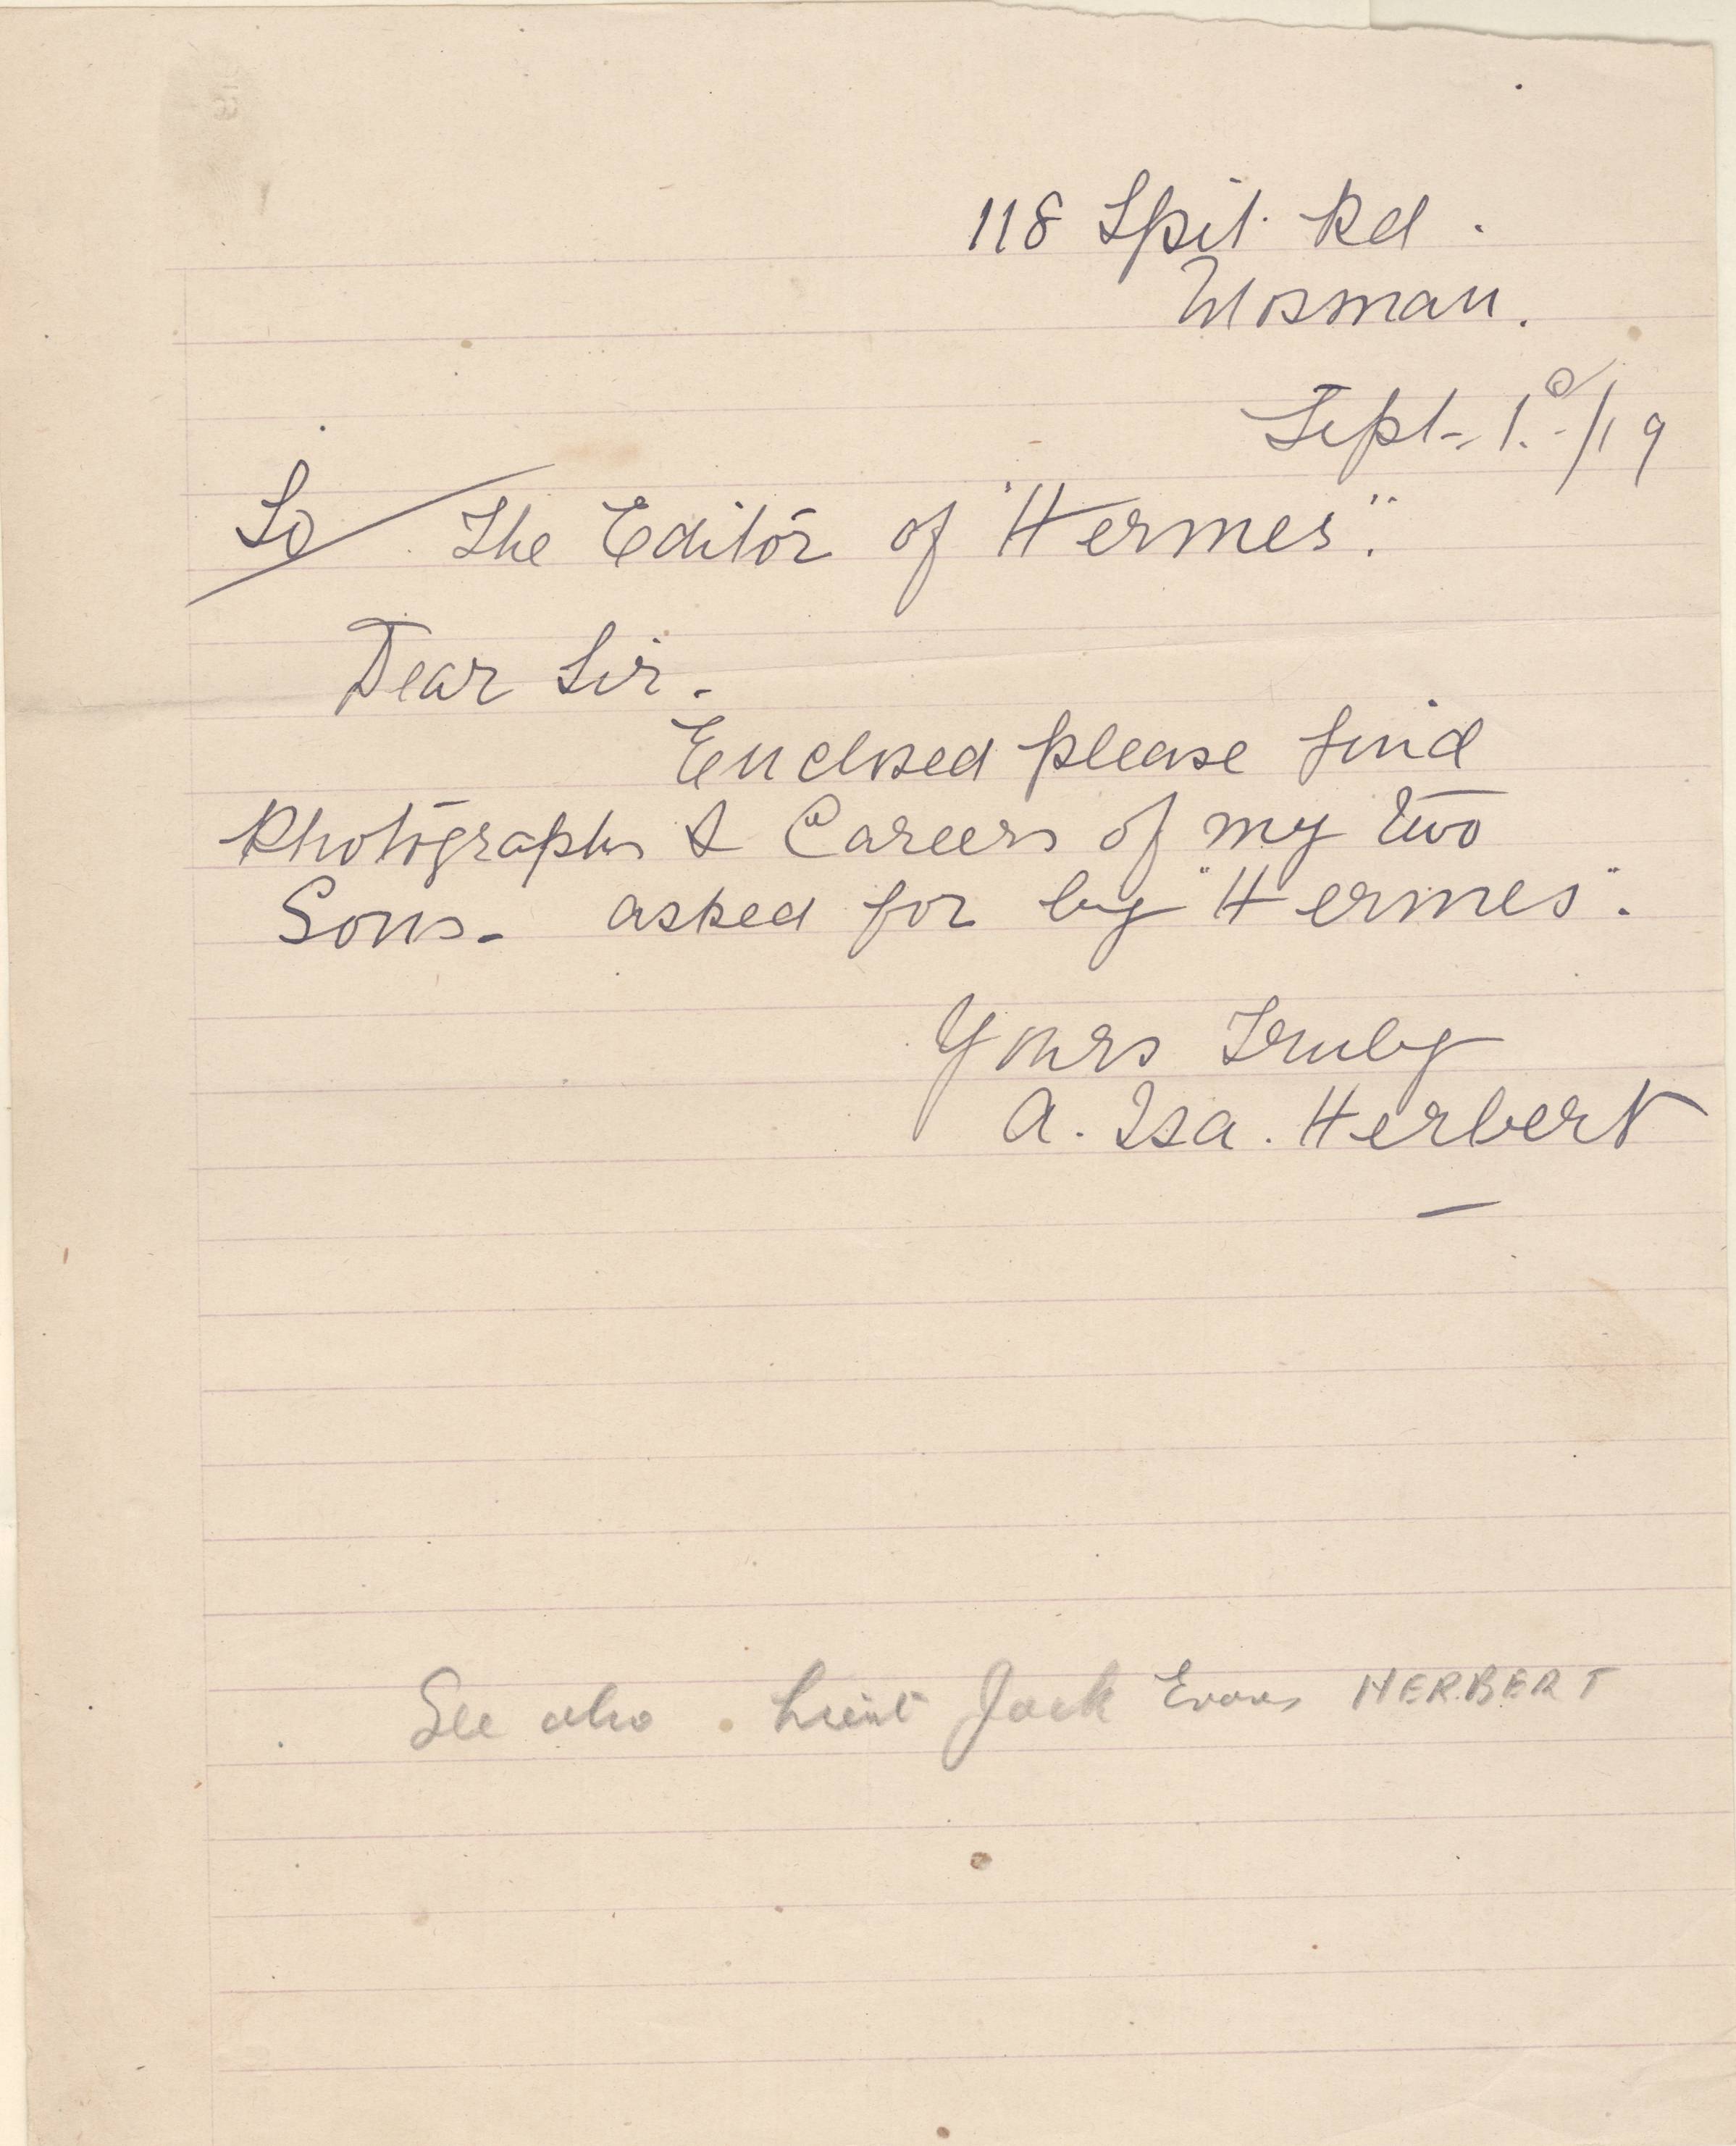 118 Spit Rd.
Mosman.
Sept. 1.º/19
To The Editor of "Hermes".
Dear Sir.
Enclosed please find
Photographs & Careers of my two
Sons - asked for by "Hermes".
Yours Truly
A. Isa. Herbert
See also . Lieut Jack Evans HERBERT